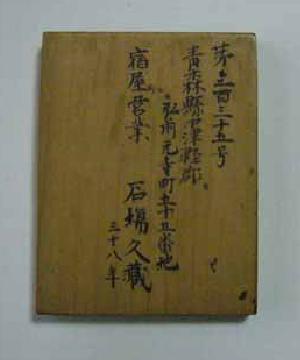 第三百三十五号
青森縣中津軽郡
弘前元寺町五十五番地
宿屋営業
石場久蔵
三十八年